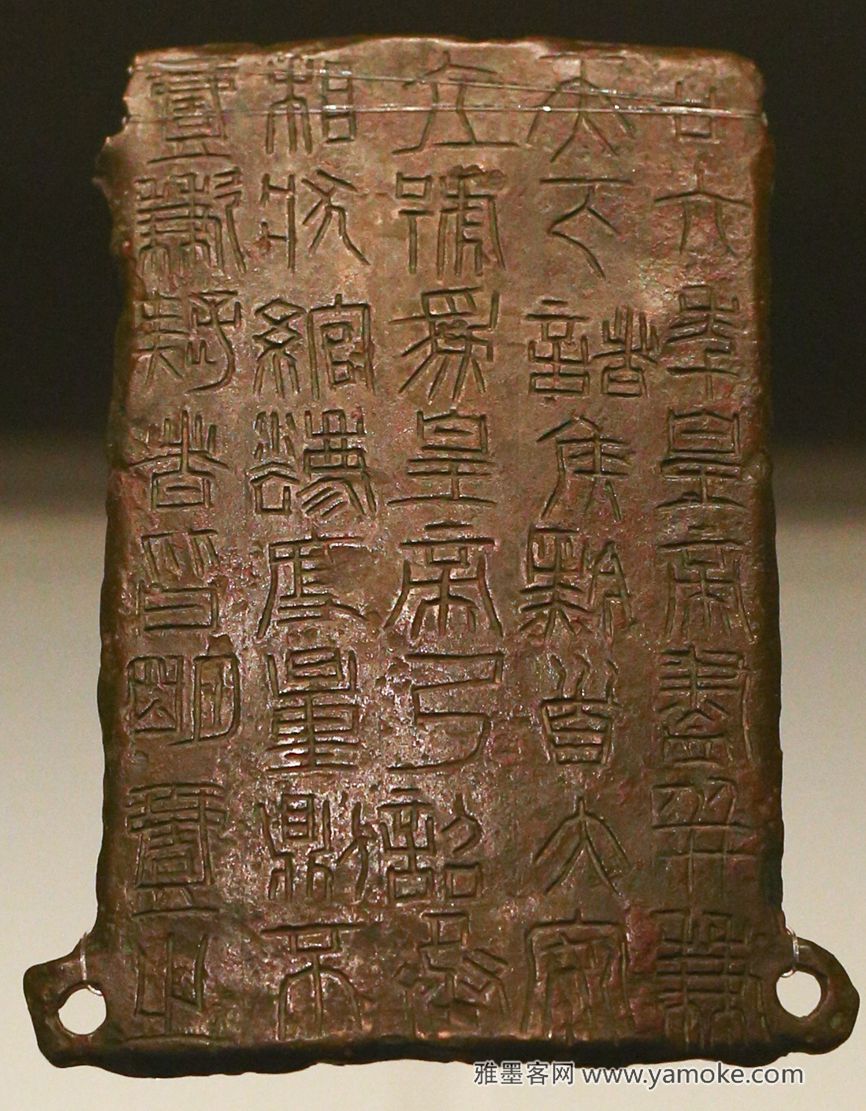 廿六年皇帝盡并兼
天下諸侯黔首大安
立號為皇帝乃詔丞
相狀綰灋度量則不
壹歉疑者皆明壹之
雅墨客网 www.yamoke.com